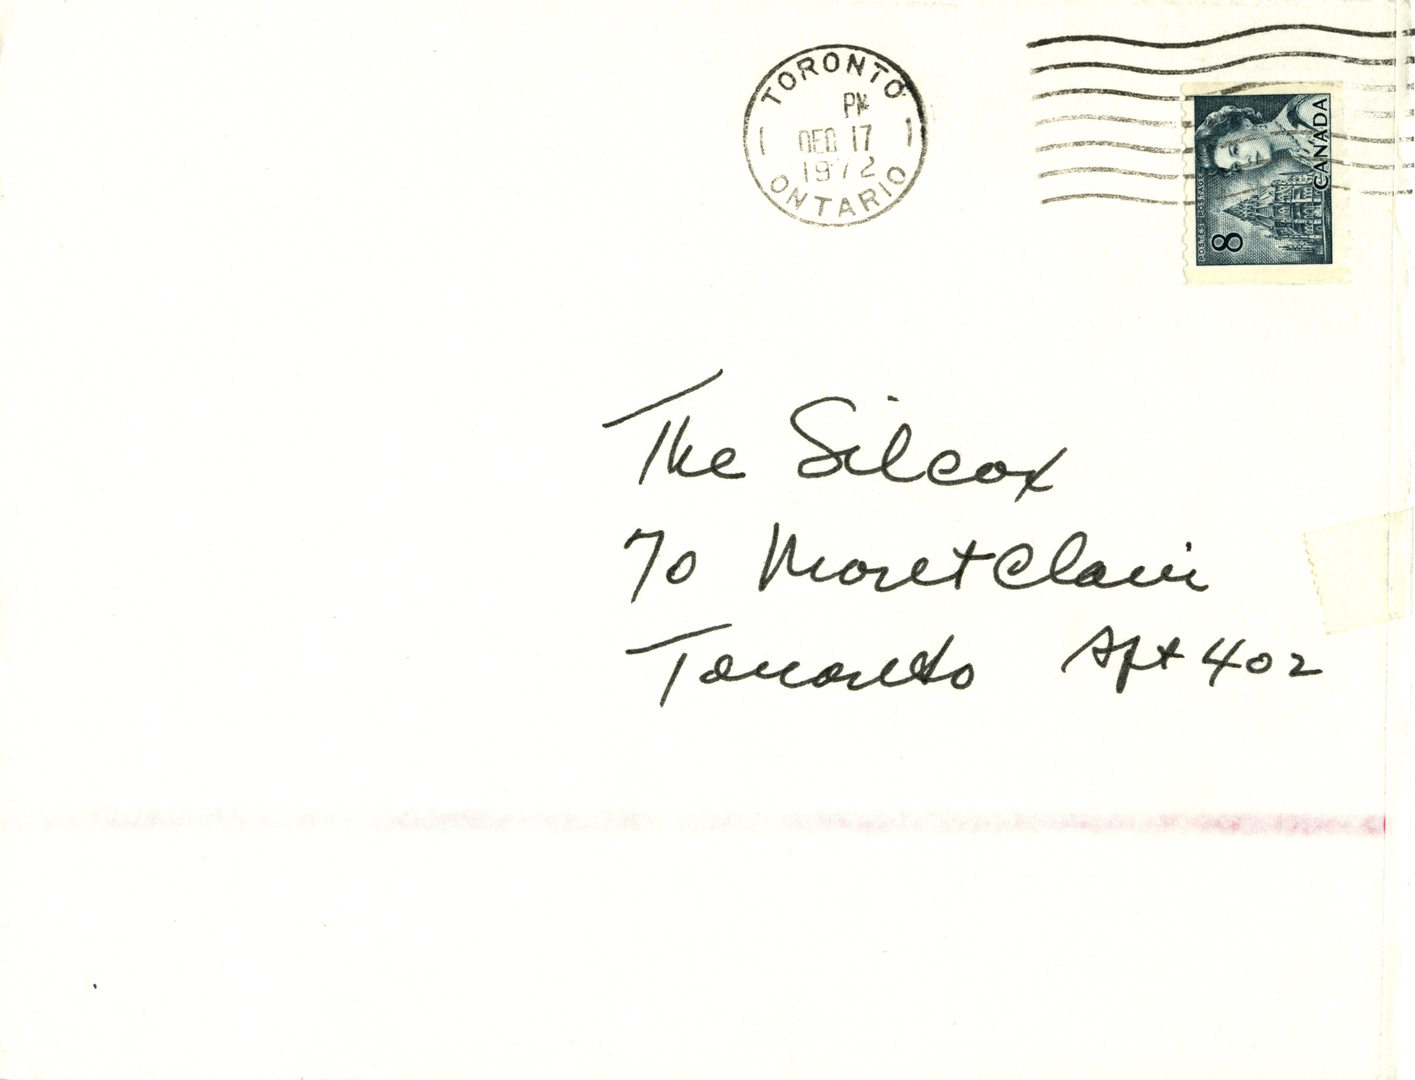 TORONTO
PM
DEC 17
1972
ONTARIO
CANADA
POSTES POSTAGE
8
The Silcox
70 MontClair
Toronto Apt 402